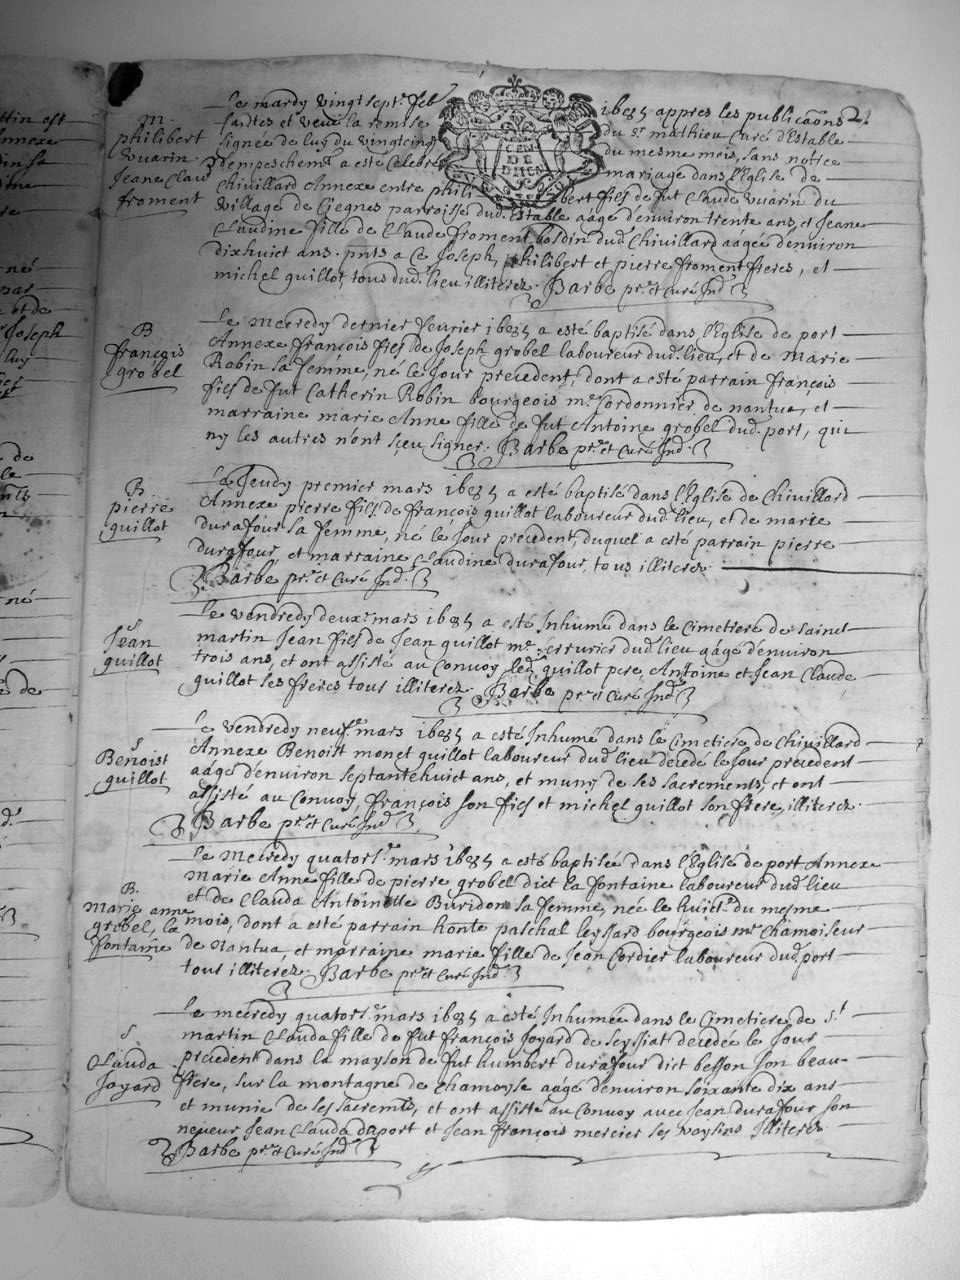 Le mardy vingt septe feb 1685 appres les publicaõns 21
m. faictes et veu la remise du Sr mathieu Curé d'Estable
philibert signée de luy du vingtcinq du mesme mois, sans notice
vuarin d'empeschemt a esté Celebré mariage dans l'Eglise de
Jeane Clau Chivillard Annexe entre phili bert fils de fut Claude vuarin du
froment village de Ciegnes parroisse dud. Estable aagé d'environ trente ans, et Jeane
Claudine fille de Claude froment dud. Chivillard aagée d'environ
dixhuict ans. pnts a ce Joseph, philibert et pierre froment freres, et
michel guillot, tous dud. lieu illiterez. Barbe ptre et Curé Ind.
Le Mecredy dernier feuvrier 1685 a esté baptisé dans l'Eglise de port
B Annexe françois fils de Joseph grobel laboureur dud. lieu, et de Marie
françois Robin sa femme, né le Jour precedent, dont a esté parrain françois
grobel fils de fut Catherin Robin bourgeois me Cordonnier de nantua, et
marraine marie Anne fille de fut Antoine grobel dud. port, qui
ny les autres n'ont sçeu signer. Barbe ptre et Curé Ind.
Le Jeudy premier mars 1685 a esté baptisé dans l'Eglise de Chivillard
B. Annexe pierre fils de françois guillot laboureur dud. lieu, et de marie
pierre durafour sa femme, né le Jour precedent, duquel a esté parrain pierre
guillot durafour, et marraine Claudine durafour, tous illiterez.
Barbe ptre et Curé Ind.
Le vendredy deuxe mars 1685 a esté Inhumé dans le Cimetiere de Sainct
S martin Jean fils de Jean guillot me serrurier dud. lieu aagé d'environ
Jean trois ans, et ont assisté au Convoy led. guillot pere, Antoine et Jean Claude
guillot guillot ses freres tous illiterez. Barbe ptre et Curé Ind.
Le vendredy neufe mars 1685 a esté Inhumé dans le Cimetiere de Chivillard
S Annexe Benoist monet guillot laboureur dud. lieu decedé le Jour precedent
Benoist aagé d'environ septantehuict ans, et muny de ses sacrements, et ont
guillot assisté au Convoy, françois son fils et michel guillot son frere, illiterez.
Barbe ptre et Curé Ind.
Le Mecredy quatorse mars 1685 a esté baptisée dans l'Eglise de port Annexe
Marie Anne fille de pierre grobel dict la fontaine laboureur dud. lieu
B. et de Clauda Antoinette Buridon sa femme, née le huicte du mesme
Marie anne mois, dont a esté parrain honte paschal leyssard bourgeois me Chamoiseur
grobel, la de Nantua, et marraine marie fille de Jean Cordier laboureur dud. port
fontaine tous illiterez. Barbe ptre et Curé Ind.
Le mecredy quatorse mars 1685 a esté Inhumée dans le Cimetiere de St
S. martin Clauda fille de fut françois Joyard de Seyssiat decedée le Jour
Clauda precedent dans la mayson de fut humbert durafour dict besson son beau-
Joyard frere, sur la montagne de Chamoyse aagée d'environ soixante dix ans
et munie de ses sacremts, et ont assisté au Convoy avec Jean durafour son
nepveur Jean Clauda duport et Jean françois mercier ses voysins Illiterez
Barbe ptre et Curé Ind.